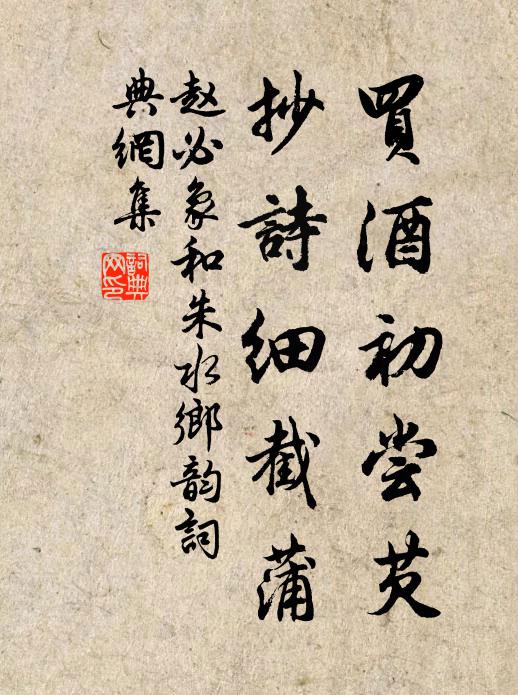 買酒初尝芡
抄詩細截蒲
赵必象和朱水鄉韵詞
典網集
詞典网印